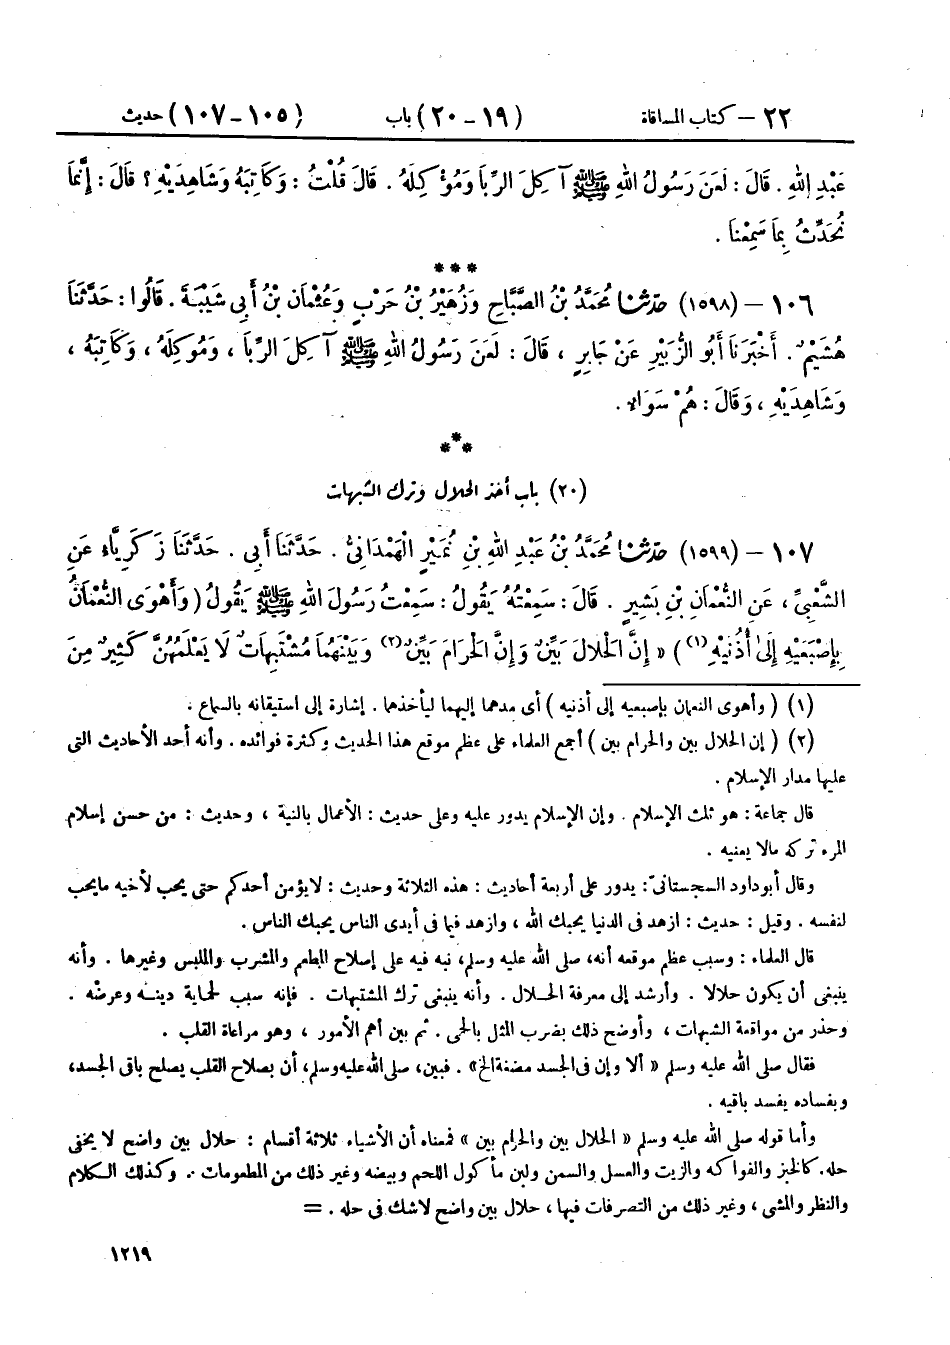 ٢٢ – كتاب المساقاة (١٩ – ٢٠) باب (١٠٥ – ١٠٧) حديث
عَبْدِ اللهِ . قَالَ : لَعَنَ رَسُولُ اللهِ ﷺ آكِلَ الرِّبَا وَمُؤْكِلَهُ . قَالَ قُلْتُ : وَكَاتِبَهُ وَشَاهِدَيْهِ ؟ قَالَ : إِنَّمَا
نُحَدِّثُ بِمَا سَمِعْنَا .
***
١٠٦ – (١٥٩٨) حدّثنا مُحَمَّدُ بْنُ الصَّبَّاحِ وَزُهَيْرُ بْنُ حَرْبٍ وَعُثْمَانُ بْنُ أَبِي شَيْبَةَ . قَالُوا : حَدَّثَنَا
هُشَيْمٌ . أَخْبَرَنَا أَبُو الزُّبَيْرِ عَنْ جَابِرٍ ، قَالَ : لَعَنَ رَسُولُ اللهِ ﷺ آكِلَ الرِّبَا ، وَمُوكِلَهُ ، وَكَاتِبَهُ ،
وَشَاهِدَيْهِ ، وَقَالَ : هُمْ سَوَاءٌ .
***
(٢٠) باب أخذ الحلال وترك الشبهات
١٠٧ – (١٥٩٩) حدّثنا مُحَمَّدُ بْنُ عَبْدِ اللهِ بْنِ نُمَيْرٍ الْهَمْدَانِيُّ . حَدَّثَنَا أَبِي . حَدَّثَنَا زَكَرِيَّاءُ عَنِ
الشَّعْبِيِّ ، عَنِ النُّعْمَانِ بْنِ بَشِيرٍ . قَالَ : سَمِعْتُهُ يَقُولُ : سَمِعْتُ رَسُولَ اللهِ ﷺ يَقُولُ ( وَأَهْوَى النُّعْمَانُ
بِإِصْبَعَيْهِ إِلَى أُذُنَيْهِ (١) ) « إِنَّ الْحَلَالَ بَيِّنٌ وَإِنَّ الْحَرَامَ بَيِّنٌ (٢) وَبَيْنَهُمَا مُشْتَبِهَاتٌ لَا يَعْلَمُهُنَّ كَثِيرٌ مِنَ
(١) ( وأهوى النعمان بإصبعيه إلى أذنيه ) أى مدهما إليهما ليأخذهما . إشارة إلى استيقانه بالسماع .
(٢) ( إن الحلال بين والحرام بين ) أجمع العلماء على عظم موقع هذا الحديث وكثرة فوائده . وأنه أحد الأحاديث التى
عليها مدار الإسلام .
قال جماعة : هو ثلث الإسلام . وإن الإسلام يدور عليه وعلى حديث : الأعمال بالنية ، وحديث : من حسن إسلام
المرء تركه مالا يعنيه .
وقال أبوداود السجستانىّ : يدور على أربعة أحاديث : هذه الثلاثة وحديث : لايؤمن أحدكم حتى يحب لأخيه مايحب
لنفسه . وقيل : حديث : ازهد فى الدنيا يحبك الله ، وازهد فيما فى أيدى الناس يحبك الناس .
قال العلماء : وسبب عظم موقعه أنه، صلى الله عليه وسلم، نبه فيه على إصلاح المطعم والمشرب والملبس وغيرها . وأنه
ينبغى أن يكون حلالا . وأرشد إلى معرفة الحلال . وأنه ينبغى ترك المشتبهات . فإنه سبب لحماية دينه وعرضه .
وحذر من مواقعة الشبهات ، وأوضح ذلك بضرب المثل بالحمى . ثم بين أهم الأمور ، وهو مراعاة القلب .
فقال صلى الله عليه وسلم « ألا وإن فى الجسد مضغة الخ » . فبين، صلى الله عليه وسلم، أن بصلاح القلب يصلح باقى الجسد،
وبفساده يفسد باقيه .
وأما قوله صلى الله عليه وسلم « الحلال بين والحرام بين » فمعناه أن الأشياء ثلاثة أقسام : حلال بين واضح لا يخفى
حله. كالخبز والفواكه والزيت والعسل والسمن ولبن مأكول اللحم وبيضه وغير ذلك من المطعومات . وكذلك الكلام
والنظر والمشى ، وغير ذلك من التصرفات فيها ، حلال بين واضح لاشك فى حله . =
١٢١٩